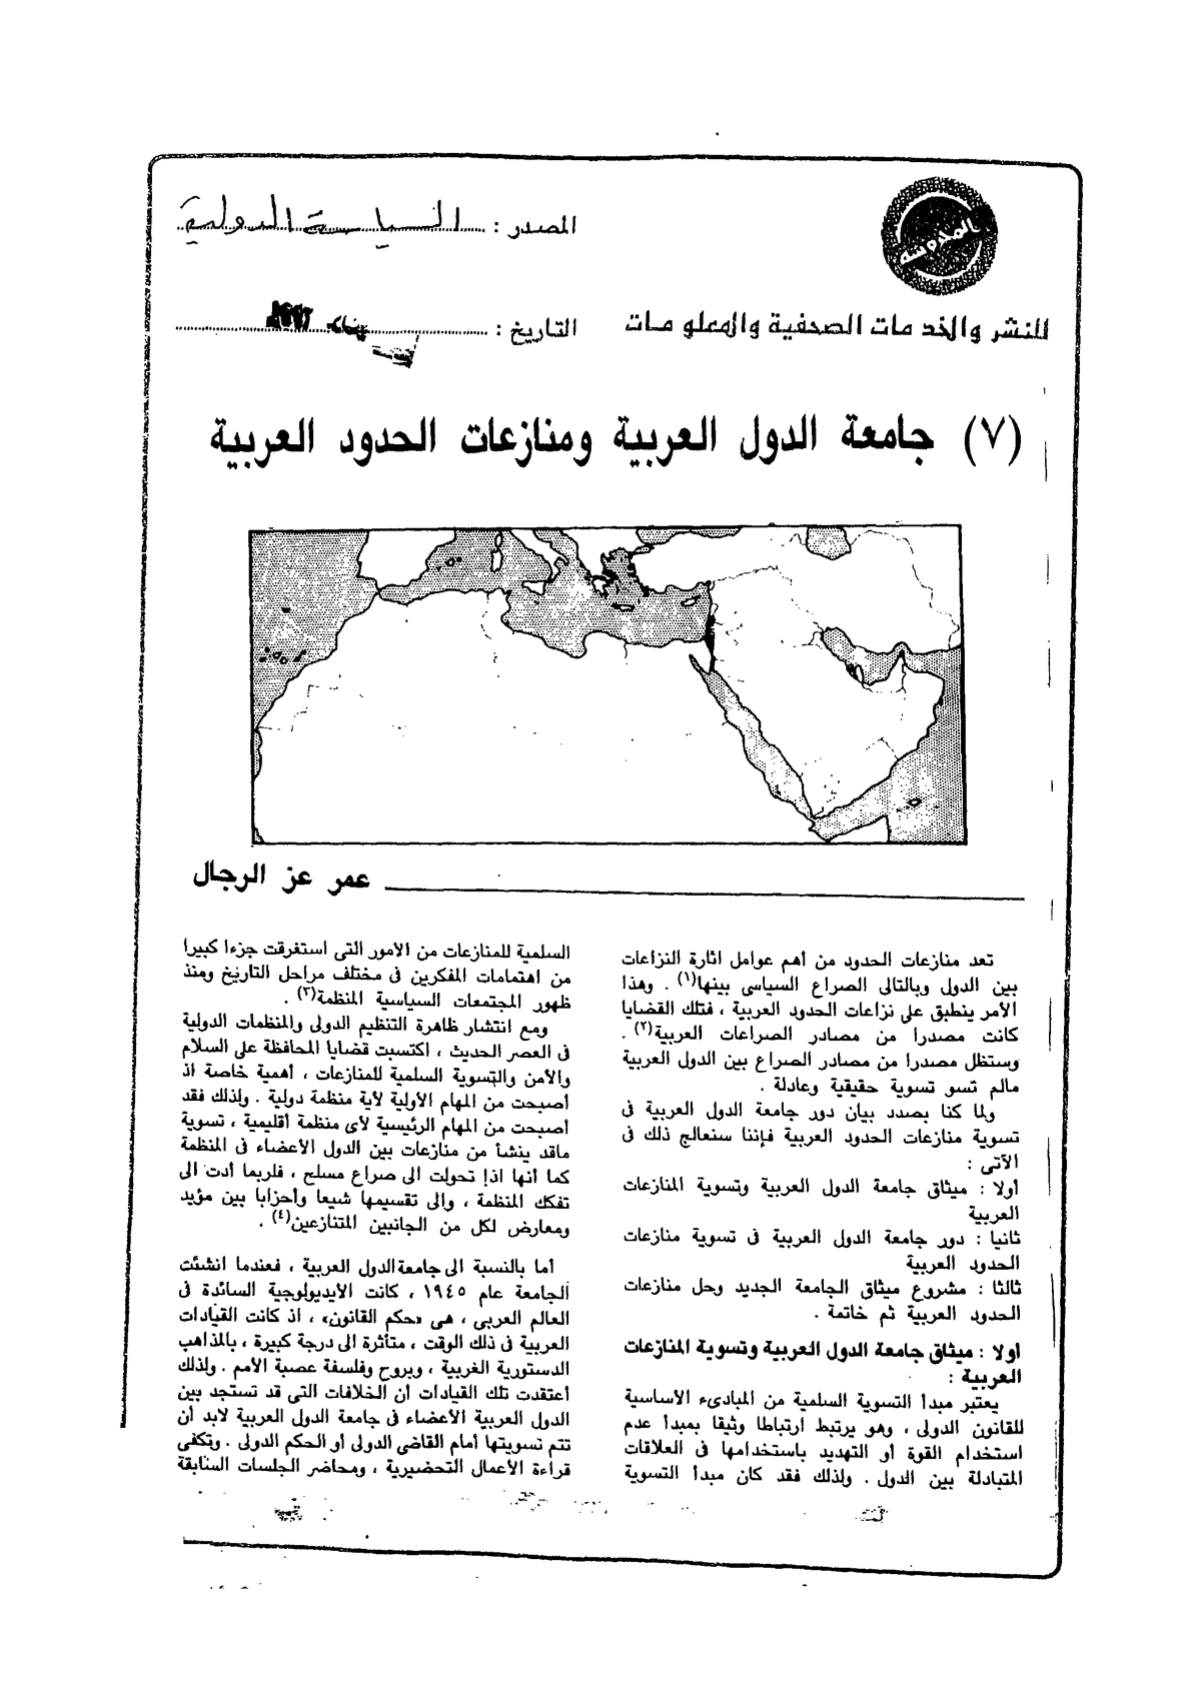 المصدر : السياسة الدولية
المدوسة
للنشر والخدمات الصحفية والمعلومات
التاريخ :
(٧) جامعة الدول العربية ومنازعات الحدود العربية
عمر عز الرجال
تعد منازعات الحدود من أهم عوامل اثارة النزاعات
بين الدول وبالتالى الصراع السياسى بينها(١) . وهذا
الأمر ينطبق على نزاعات الحدود العربية ، فتلك القضايا
كانت مصدرا من مصادر الصراعات العربية(٢) .
وستظل مصدرا من مصادر الصراع بين الدول العربية
مالم تسو تسوية حقيقية وعادلة .
ولما كنا بصدد بيان دور جامعة الدول العربية فى
تسوية منازعات الحدود العربية فإننا سنعالج ذلك فى
الآتى :
أولا : ميثاق جامعة الدول العربية وتسوية المنازعات
العربية
ثانيا : دور جامعة الدول العربية فى تسوية منازعات
الحدود العربية
ثالثا : مشروع ميثاق الجامعة الجديد وحل منازعات
الحدود العربية ثم خاتمة .
أولا : ميثاق جامعة الدول العربية وتسوية المنازعات
العربية :
يعتبر مبدأ التسوية السلمية من المبادىء الأساسية
للقانون الدولى ، وهو يرتبط ارتباطا وثيقا بمبدأ عدم
استخدام القوة أو التهديد باستخدامها فى العلاقات
المتبادلة بين الدول . ولذلك فقد كان مبدأ التسوية
السلمية للمنازعات من الأمور التى استغرقت جزءا كبيرا
من اهتمامات المفكرين فى مختلف مراحل التاريخ ومنذ
ظهور المجتمعات السياسية المنظمة(٣) .
ومع انتشار ظاهرة التنظيم الدولى والمنظمات الدولية
فى العصر الحديث ، اكتسبت قضايا المحافظة على السلام
والأمن والتسوية السلمية للمنازعات ، أهمية خاصة اذ
أصبحت من المهام الأولية لأية منظمة دولية . ولذلك فقد
أصبحت من المهام الرئيسية لأى منظمة أقليمية ، تسوية
ماقد ينشأ من منازعات بين الدول الأعضاء فى المنظمة
كما أنها اذا تحولت الى صراع مسلح ، فلربما أدت الى
تفكك المنظمة ، والى تقسيمها شيعا وأحزابا بين مؤيد
ومعارض لكل من الجانبين المتنازعين(٤) .
أما بالنسبة الى جامعة الدول العربية ، فعندما انشئت
الجامعة عام ١٩٤٥ ، كانت الأيديولوجية السائدة فى
العالم العربى ، هى «حكم القانون» ، اذ كانت القيادات
العربية فى ذلك الوقت ، متأثرة الى درجة كبيرة ، بالمذاهب
الدستورية الغربية ، وبروح وفلسفة عصبة الأمم . ولذلك
أعتقدت تلك القيادات أن الخلافات التى قد تستجد بين
الدول العربية الأعضاء فى جامعة الدول العربية لابد أن
تتم تسويتها أمام القاضى الدولى أو الحكم الدولى . وتكفى
قراءة الأعمال التحضيرية ، ومحاضر الجلسات السابقة